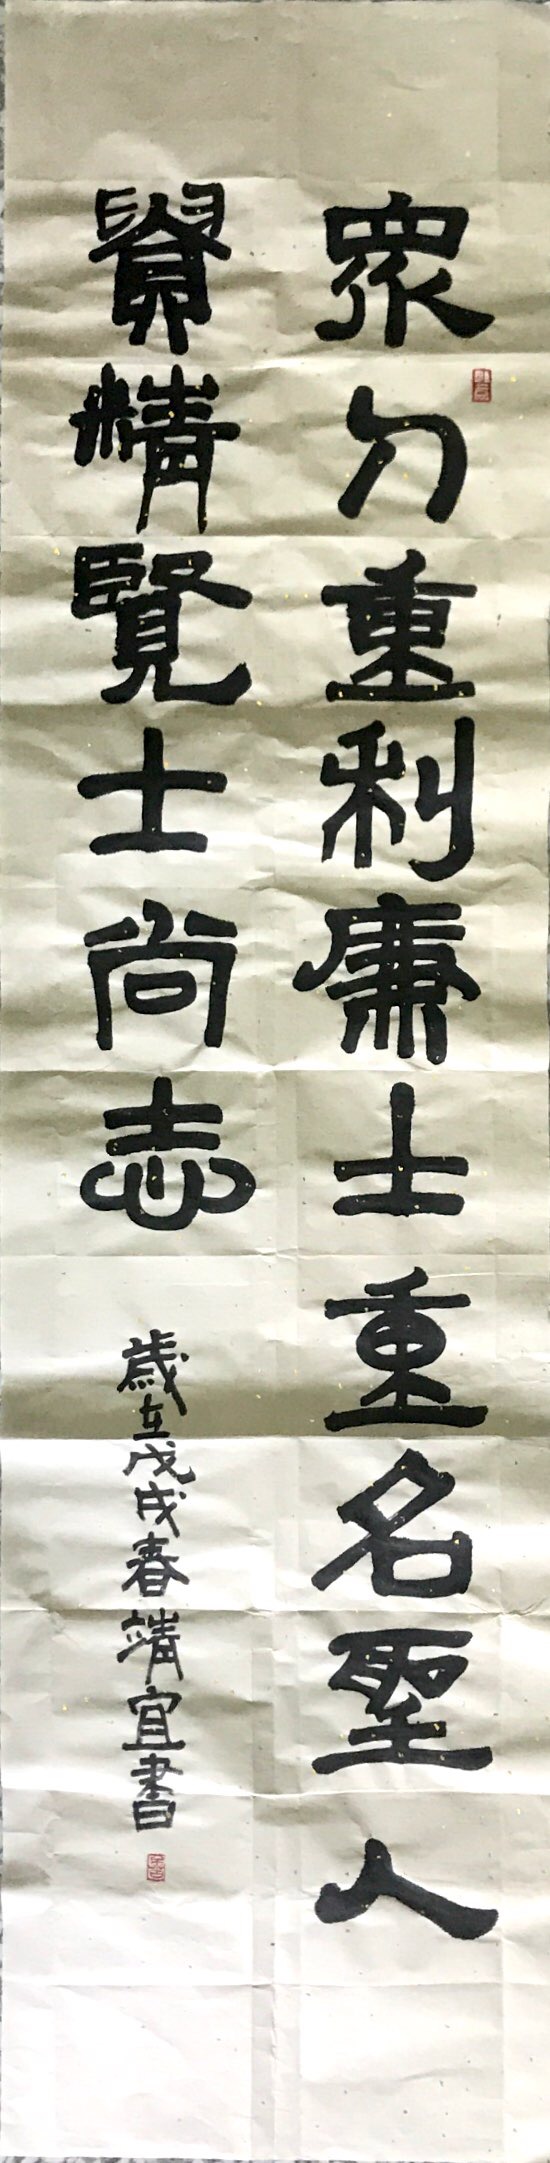 眾人重利廉士重名聖人
貴精賢士尚志
歲在戊戌春靖宜書